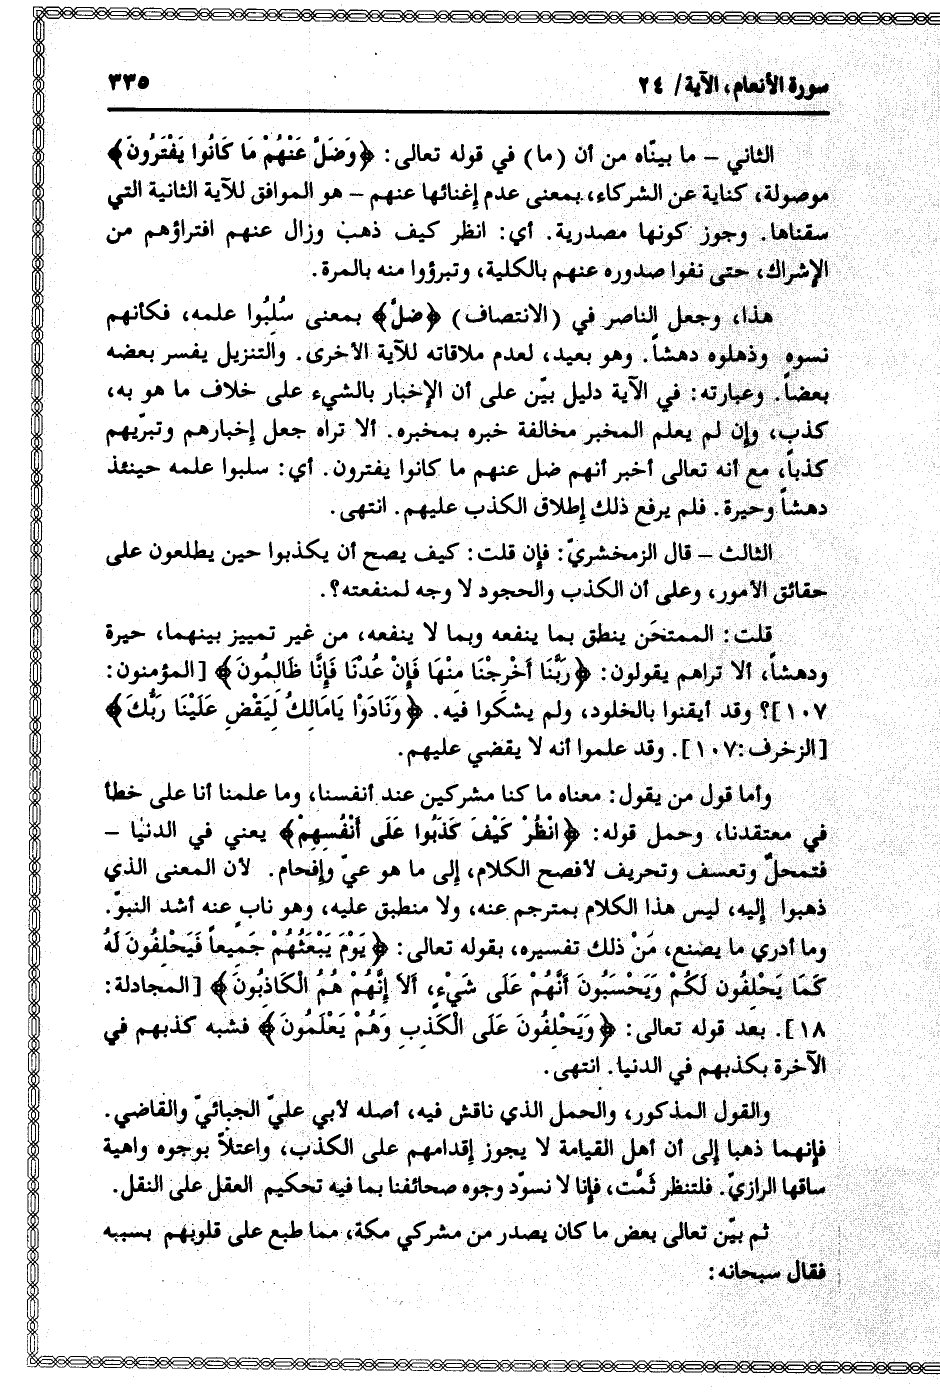 سورة الأنعام، الآية/ ٢٤
٣٣٥
الثاني – ما بينّاه من أن (ما) في قوله تعالى: ﴿وَضَلَّ عَنْهُمْ مَا كَانُوا يَفْتَرُونَ﴾
موصولة، كناية عن الشركاء، بمعنى عدم إغنائها عنهم – هو الموافق للآية الثانية التي
سقناها. وجوز كونها مصدرية. أي: انظر كيف ذهب وزال عنهم افتراؤهم من
الإشراك، حتى نفوا صدوره عنهم بالكلية، وتبرؤوا منه بالمرة.
هذا، وجعل الناصر في (الانتصاف) ﴿ضلَّ﴾ بمعنى سُلِبُوا علمه، فكأنهم
نسوه وذهلوه دهشاً. وهو بعيد، لعدم ملاقاته للآية الأخرى. والتنزيل يفسر بعضه
بعضاً. وعبارته: في الآية دليل بيّن على أن الإخبار بالشيء على خلاف ما هو به،
كذب، وإن لم يعلم المخبر مخالفة خبره بمخبره. ألا تراه جعل إخبارهم وتبرّيهم
كذباً، مع أنه تعالى أخبر أنهم ضل عنهم ما كانوا يفترون. أي: سلبوا علمه حينئذ
دهشاً وحيرة. فلم يرفع ذلك إطلاق الكذب عليهم. انتهى.
الثالث – قال الزمخشريّ: فإن قلت: كيف يصح أن يكذبوا حين يطلعون على
حقائق الأمور، وعلى أن الكذب والحجود لا وجه لمنفعته؟.
قلت: الممتحَن ينطق بما ينفعه وبما لا ينفعه، من غير تمييز بينهما، حيرة
ودهشاً، ألا تراهم يقولون: ﴿رَبَّنَا أَخْرِجْنَا مِنْهَا فَإِنْ عُدْنَا فَإِنَّا ظَالِمُونَ﴾ [المؤمنون:
١٠٧]؟ وقد أيقنوا بالخلود، ولم يشكوا فيه. ﴿وَنَادَوْا يَامَالِكُ لِيَقْضِ عَلَيْنَا رَبُّكَ﴾
[الزخرف:١٠٧]. وقد علموا أنه لا يقضي عليهم.
وأما قول من يقول: معناه ما كنا مشركين عند أنفسنا، وما علمنا أنا على خطأ
في معتقدنا، وحمل قوله: ﴿انْظُرْ كَيْفَ كَذَبُوا عَلَى أَنْفُسِهِمْ﴾ يعني في الدنيا –
فتمحلٌ وتعسف وتحريف لأفصح الكلام، إلى ما هو عيّ وإفحام. لأن المعنى الذي
ذهبوا إليه، ليس هذا الكلام بمترجم عنه، ولا منطبق عليه، وهو نابٍ عنه أشد النبوّ.
وما أدري ما يصنع، مَنْ ذلك تفسيره، بقوله تعالى: ﴿يَوْمَ يَبْعَثُهُمْ جَمِيعاً فَيَحْلِفُونَ لَهُ
كَمَا يَحْلِفُونَ لَكُمْ وَيَحْسَبُونَ أَنَّهُمْ عَلَى شَيْءٍ، أَلاَ إِنَّهُمْ هُمُ الْكَاذِبُونَ﴾ [المجادلة:
١٨]. بعد قوله تعالى: ﴿وَيَحْلِفُونَ عَلَى الْكَذِبِ وَهُمْ يَعْلَمُونَ﴾ فشبه كذبهم في
الآخرة بكذبهم في الدنيا. انتهى.
والقول المذكور، والحمل الذي ناقش فيه، أصله لأبي عليّ الجبائيّ والقاضي.
فإنهما ذهبا إلى أن أهل القيامة لا يجوز إقدامهم على الكذب، واعتلاّ بوجوه واهية
ساقها الرازيّ. فلتنظر ثَمَّت، فإنا لا نسوّد وجوه صحائفنا بما فيه تحكيم العقل على النقل.
ثم بيّن تعالى بعض ما كان يصدر من مشركي مكة، مما طبع على قلوبهم بسببه
فقال سبحانه: